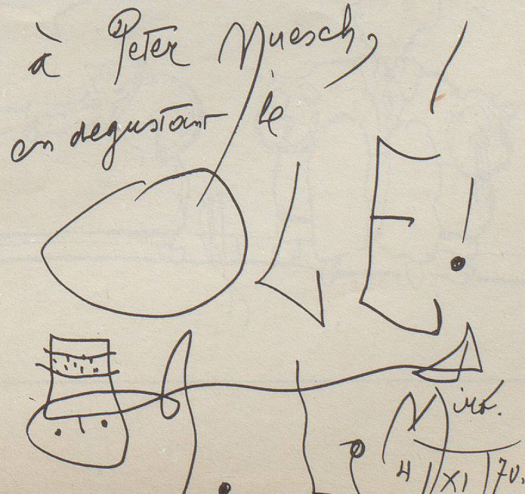 à Peter Nuesch,
en degustant le
OLE!
Miró.
4/XI/70.